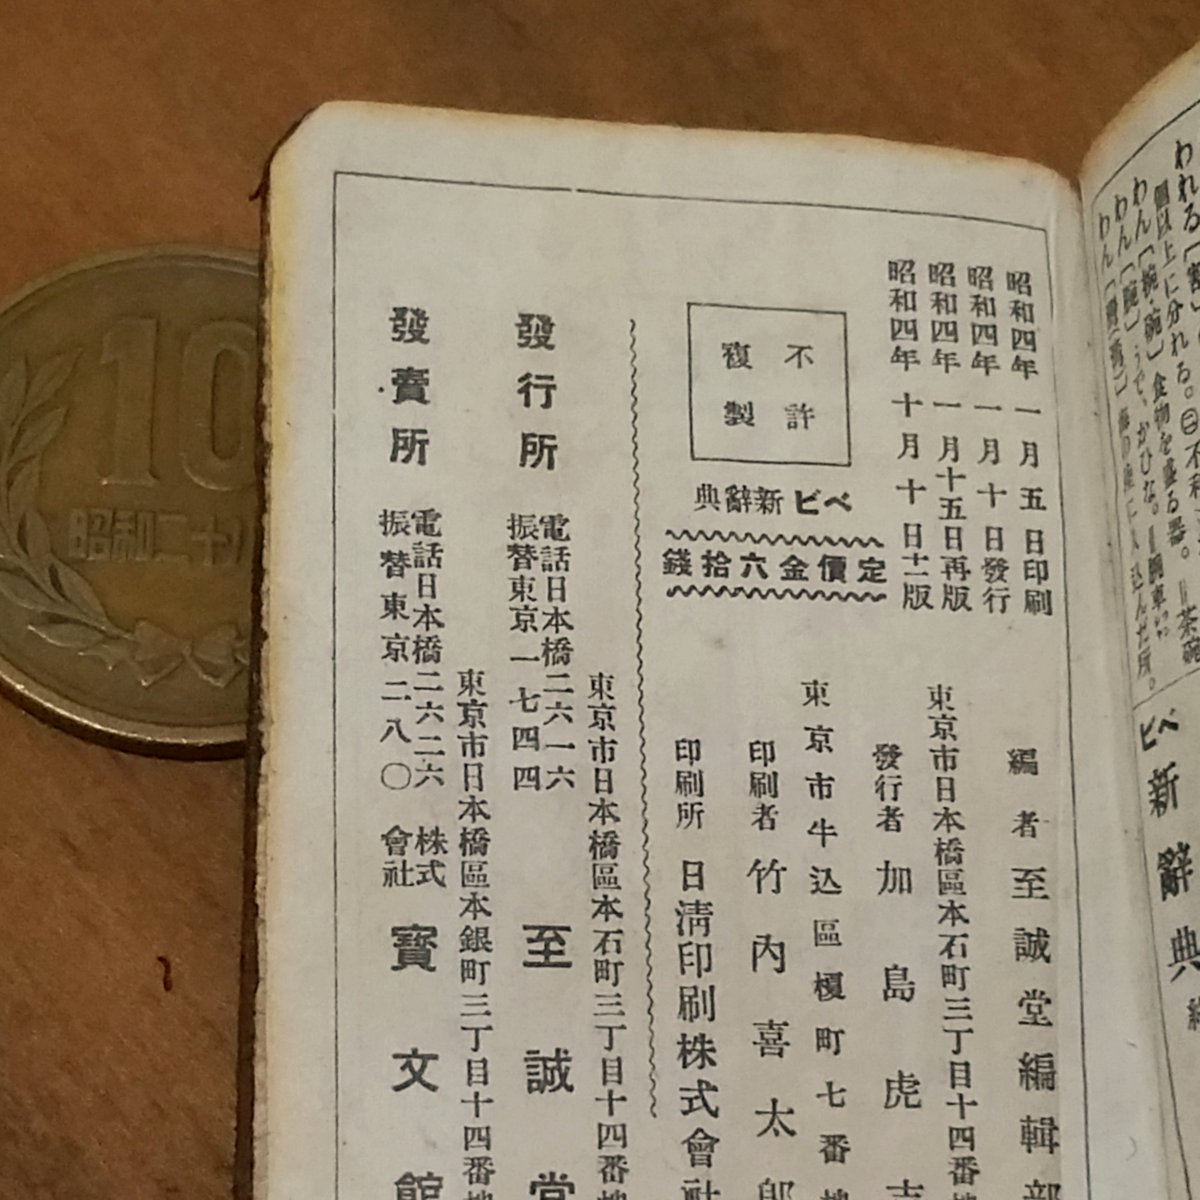 昭和四年一月五日印刷
昭和四年一月十日發行
昭和四年一月十五日再版
昭和四年十月十日十二版
不許
複製
ベビ新辭典
定價金六拾錢
編者 至誠堂編輯部
東京市日本橋區本石町三丁目十四番地
發行者 加島虎吉
東京市牛込區榎町七番地
印刷者 竹內喜太郎
印刷所 日淸印刷株式會社
東京市日本橋區本石町三丁目十四番地
發行所 至誠堂
電話日本橋二六一六
振替東京一七四四
東京市日本橋區本銀町三丁目十四番地
發賣所 株式會社 寶文館
電話日本橋二六二六
振替東京二八〇
われる
個以上に分れる。㊁不利
わん〔椀・碗〕食物を盛る器。‖茶碗
わん〔腕〕うで、かひな。‖腕車
わん
ベビ新辭典
10
昭和二十八